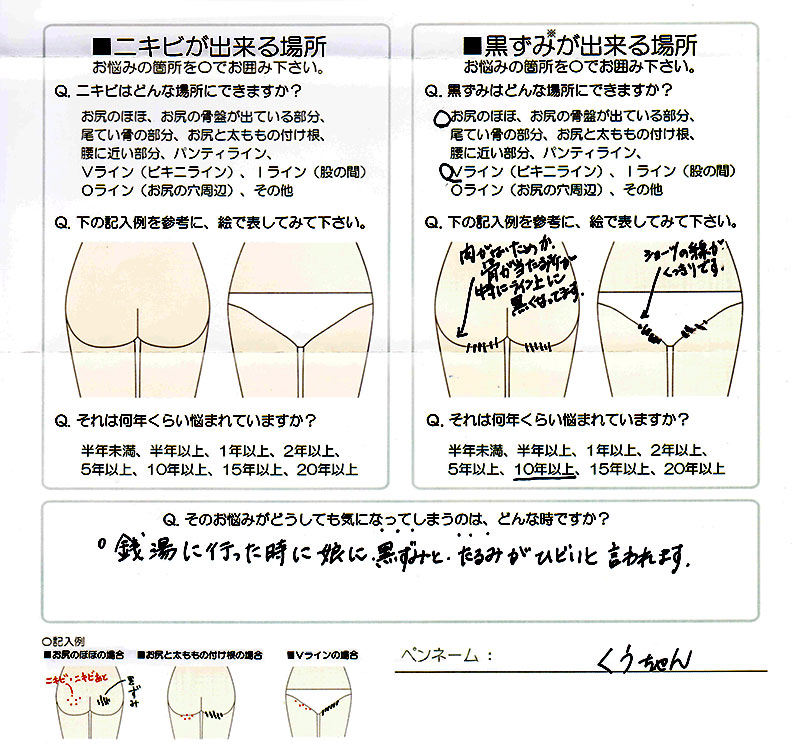 ■ニキビが出来る場所
お悩みの箇所を○でお囲み下さい。
Q. ニキビはどんな場所にできますか？
お尻のほほ、お尻の骨盤が出ている部分、
尾てい骨の部分、お尻と太ももの付け根、
腰に近い部分、パンティライン、
Vライン（ビキニライン）、Iライン（股の間）
Oライン（お尻の穴周辺）、その他
Q. 下の記入例を参考に、絵で表してみて下さい。
Q. それは何年くらい悩まれていますか？
半年未満、半年以上、1年以上、2年以上、
5年以上、10年以上、15年以上、20年以上
■黒ずみ※が出来る場所
お悩みの箇所を○でお囲み下さい。
Q. 黒ずみはどんな場所にできますか？
お尻のほほ、お尻の骨盤が出ている部分、
尾てい骨の部分、お尻と太ももの付け根、
腰に近い部分、パンティライン、
Vライン（ビキニライン）、Iライン（股の間）
Oライン（お尻の穴周辺）、その他
Q. 下の記入例を参考に、絵で表してみて下さい。
肉がないためか、
骨が当たる所が
特にライン上に
黒くなってます。
ショーツの線が
くっきりです。
Q. それは何年くらい悩まれていますか？
半年未満、半年以上、1年以上、2年以上、
5年以上、10年以上、15年以上、20年以上
Q. そのお悩みがどうしても気になってしまうのは、どんな時ですか？
○銭湯に行った時に娘に黒ずみと、たるみがひどいと言われます。
○記入例
■お尻のほほの場合
■お尻と太ももの付け根の場合
■Vラインの場合
ニキビ・ニキビあと
黒ずみ
ペンネーム：
くうちゃん